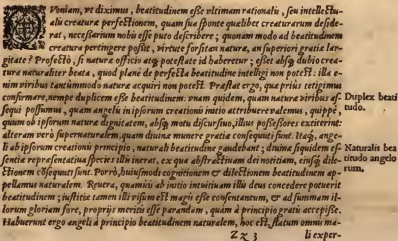 QVoniam, vt diximus, beatitudinem eße vltimam rationalis, seu intellectu-
alis creaturæ perfectionem, quam sua sponte quælibet creaturarum deside-
rat, necessarium nobis esse puto describere; quonam modo ad beatitudinem
creatura pertingere poßit, virtute forsitan naturæ, an superiori gratiæ lar-
gitate? Profectò, si naturæ officio atq; potestate id haberetur; eßet absq; dubio crea-
tura naturaliter beata, quod planè de perfecta beatitudine intelligi non potest: illa e-
nim viribus tantummodo naturæ acquiri non potest. Præstat ergo, quæ prius tetigimus
confirmare, nempe duplicem eße beatitudinem: vnam quidem, quam naturæ viribus as-
sequi possumus, quam angeli in ipsorum creationis initio attribuere valemus, quippè
quum ob ipsorum naturæ dignitatem, absq; motu discursiuo, illius possessores extiterint:
alteram verò supernaturalem, quam diuina munere gratia consequuti sunt. Itaq; ange-
li ab ipsorum creationis principio, naturali beatitudine gaudebant; diuina siquidem es-
sentia repræsentatiua species illi inerat, ex qua abstractiuam dei notitiam, eiusq; dile-
ctionem consequuti sunt. Porrò, huiusmodi cognitionem & dilectionem beatitudinem ap-
pellamus naturalem. Reuera, quamuis ab initio intuitiuam illis deus concedere potuerit
beatitudinem; iustitiæ tamen illi visum est magis eße consentaneum, & ad summam il-
lorum gloriam fore, proprijs meritis esse parandam, quàm à principio gratis accepiße.
Habuerunt ergo angeli à principio beatitudinem naturalem, hoc est, statum omni ma-
Zz 3
li exper-
Duplex beati
tudo.
Naturalis bea
titudo angelo
rum.